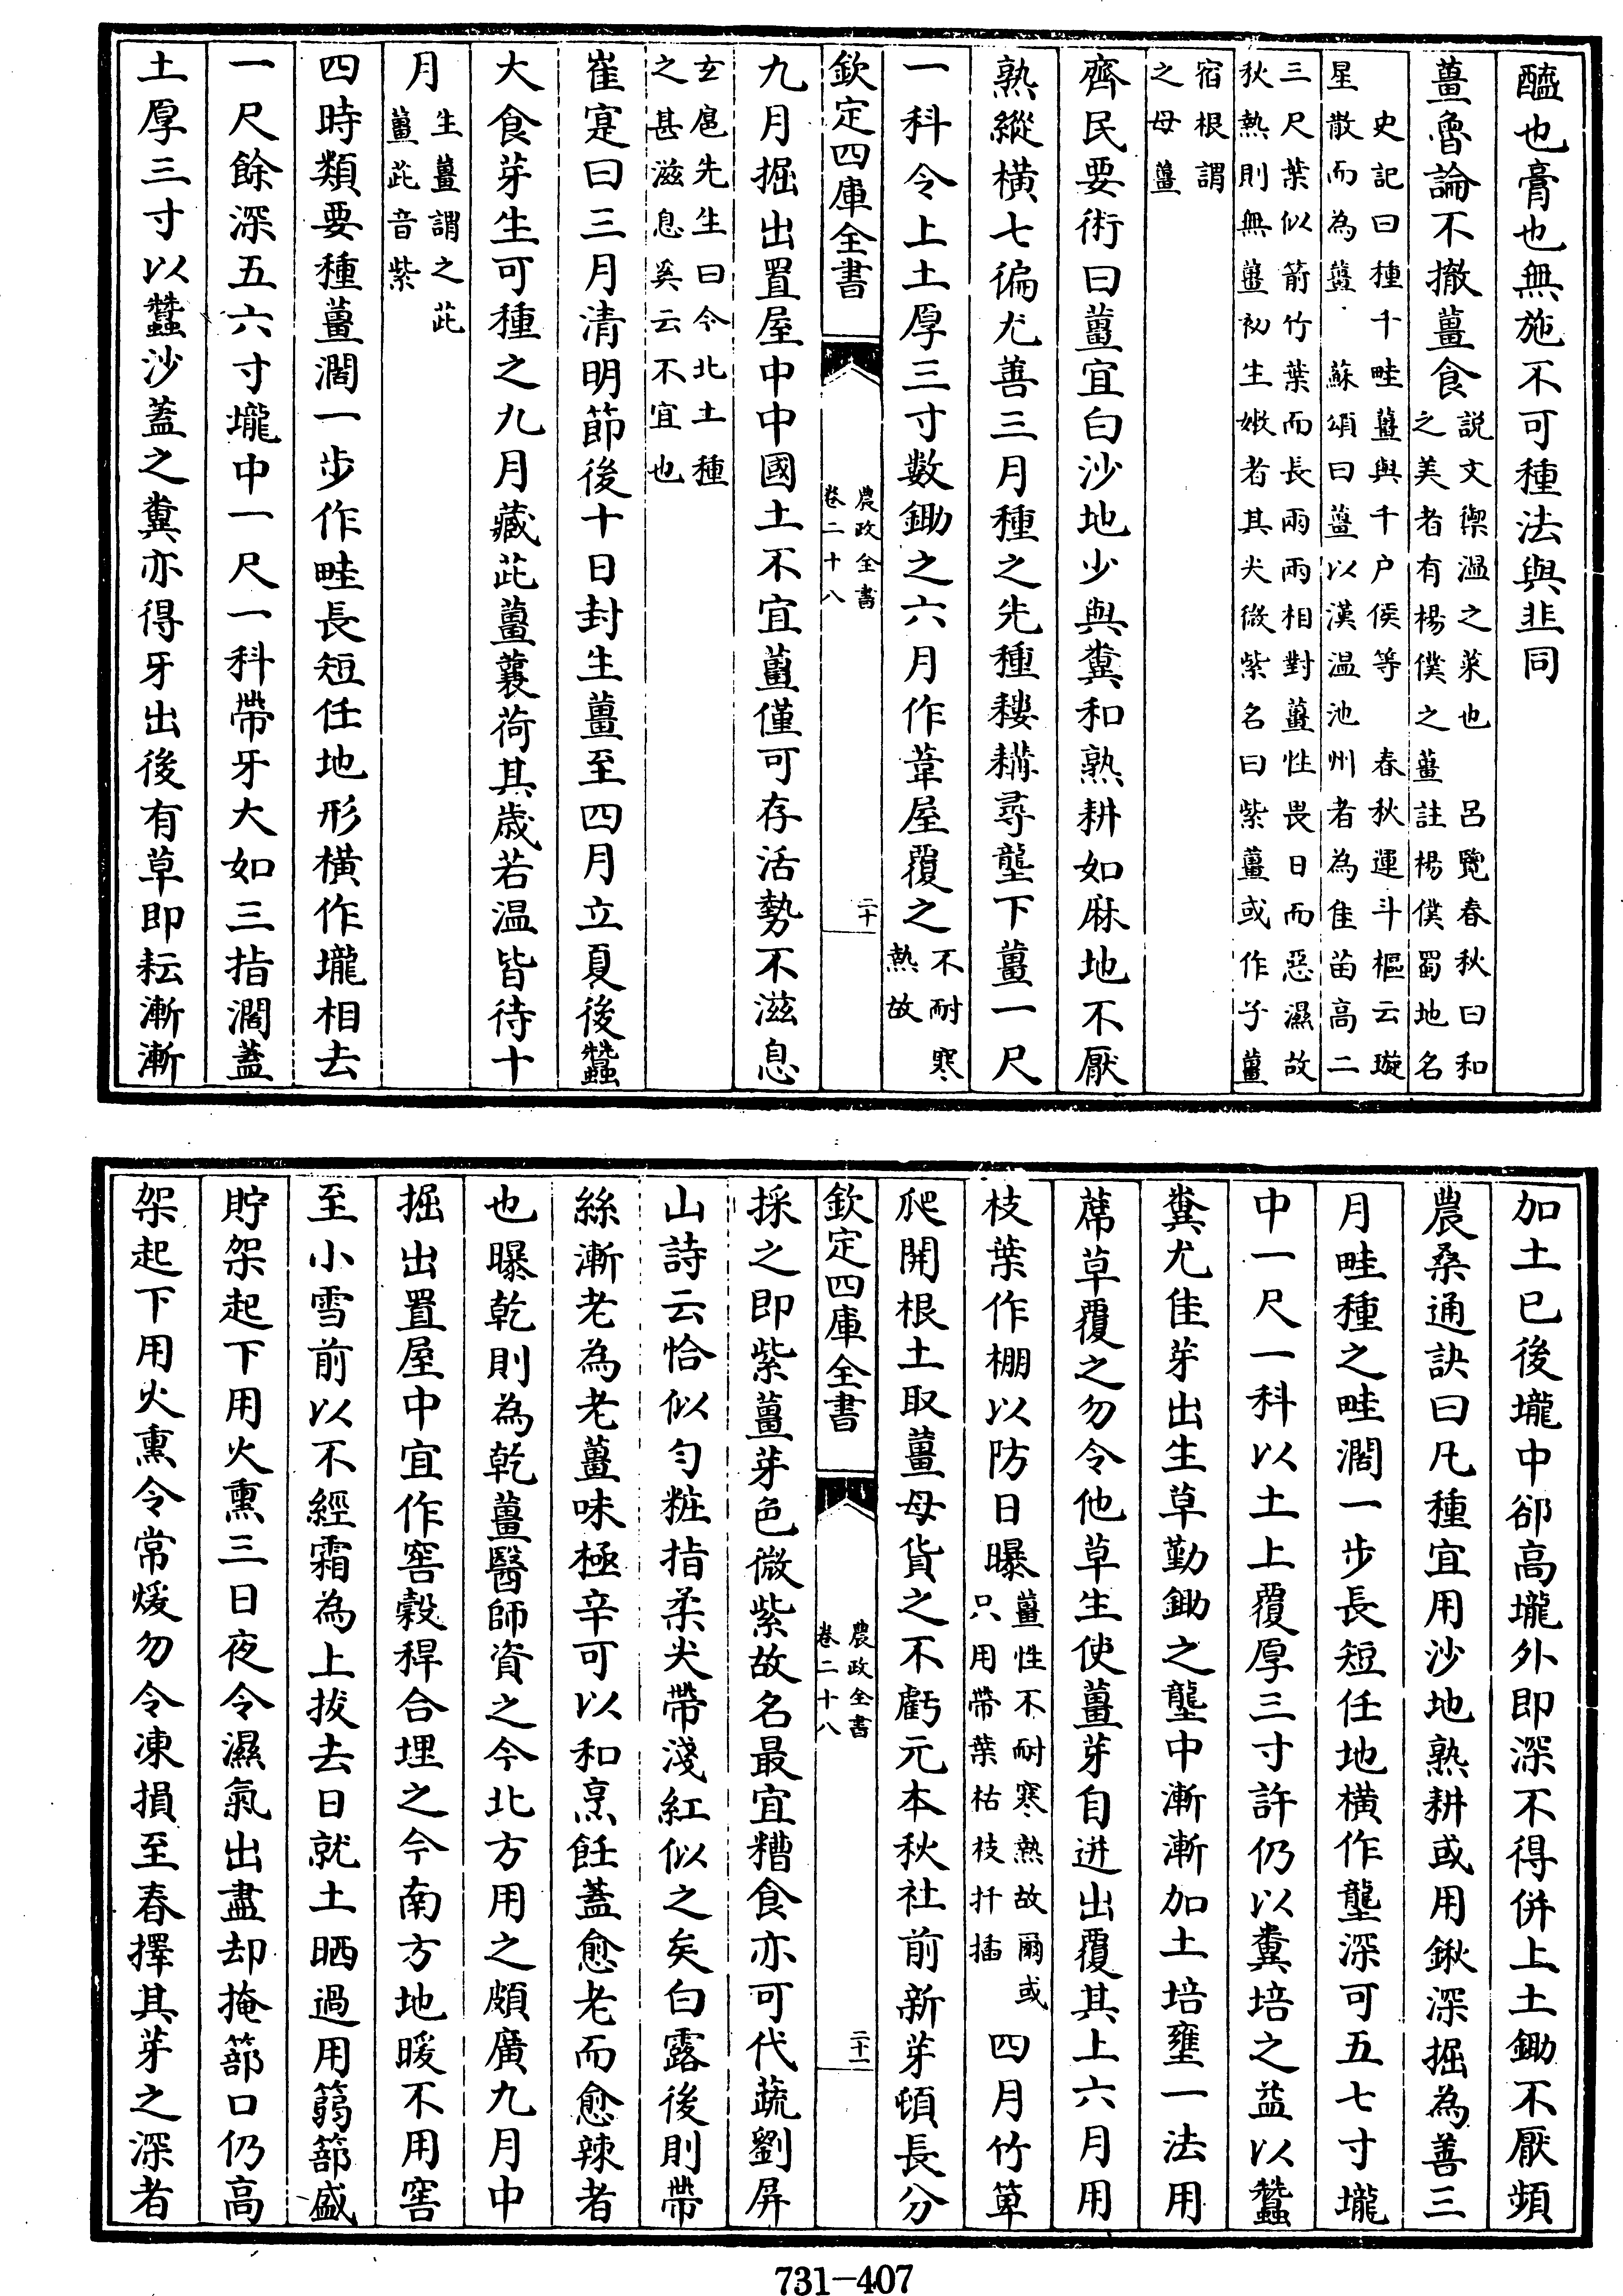 醯也膏也無施不可種法與韭同
薑魯論不撤薑食説文禦溼之菜也　吕覽春秋曰和
之美者有楊僕之薑　註楊僕蜀地名
史記曰種千畦薑與千户侯等　春秋運斗樞云璇
星散而為薑　蘇頌曰薑以漢温池州者為佳苗高二
三尺葉似箭竹葉而長兩兩相對薑性畏日而惡濕故
秋熱則無薑初生嫩者其尖微紫名曰紫薑或作子薑
宿根謂
之母薑
齊民要術曰薑宜白沙地少與糞和熟耕如麻地不厭
熟縱橫七徧尤善三月種之先種耬耩尋壟下薑一尺
一科令上土厚三寸數鋤之六月作葦屋覆之不耐寒
熱故
欽定四庫全書
農政全書
卷二十八
二十
九月掘出置屋中中國土不宜薑僅可存活勢不滋息
玄扈先生曰今北土種
之甚滋息奚云不宜也
崔寔曰三月清明節後十日封生薑至四月立夏後蠶
大食芽生可種之九月藏茈薑蘘荷其歲若温皆待十
月生薑謂之茈
薑茈音紫
四時類要種薑濶一步作畦長短任地形橫作壠相去
一尺餘深五六寸壠中一尺一科帶牙大如三指濶蓋
土厚三寸以蠶沙蓋之糞亦得牙出後有草即耘漸漸
加土已後壠中卻高壠外即深不得併上土鋤不厭頻
農桑通訣曰凡種宜用沙地熟耕或用鍬深掘為善三
月畦種之畦濶一步長短任地橫作壟深可五七寸壠
中一尺一科以土上覆厚三寸許仍以糞培之益以蠶
糞尤佳芽出生草勤鋤之壟中漸漸加土培壅一法用
蓆草覆之勿令他草生使薑芽自迸出覆其上六月用
枝葉作棚以防日曝薑性不耐寒熱故爾或
只用帶葉枯枝扦插　四月竹箄
爬開根土取薑母貨之不虧元本秋社前新芽頓長分
欽定四庫全書
農政全書
卷二十八
二十一
採之即紫薑芽色微紫故名最宜糟食亦可代蔬劉屏
山詩云恰似匀粧指柔尖帶淺紅似之矣白露後則帶
絲漸老為老薑味極辛可以和烹飪蓋愈老而愈辣者
也曝乾則為乾薑醫師資之今北方用之頗廣九月中
掘出置屋中宜作窖穀稈合埋之今南方地暖不用窖
至小雪前以不經霜為上拔去日就土晒過用篛篰盛
貯架起下用火熏三日夜令濕氣出盡却掩篰口仍高
架起下用火熏令常煖勿令凍損至春擇其芽之深者
731-407